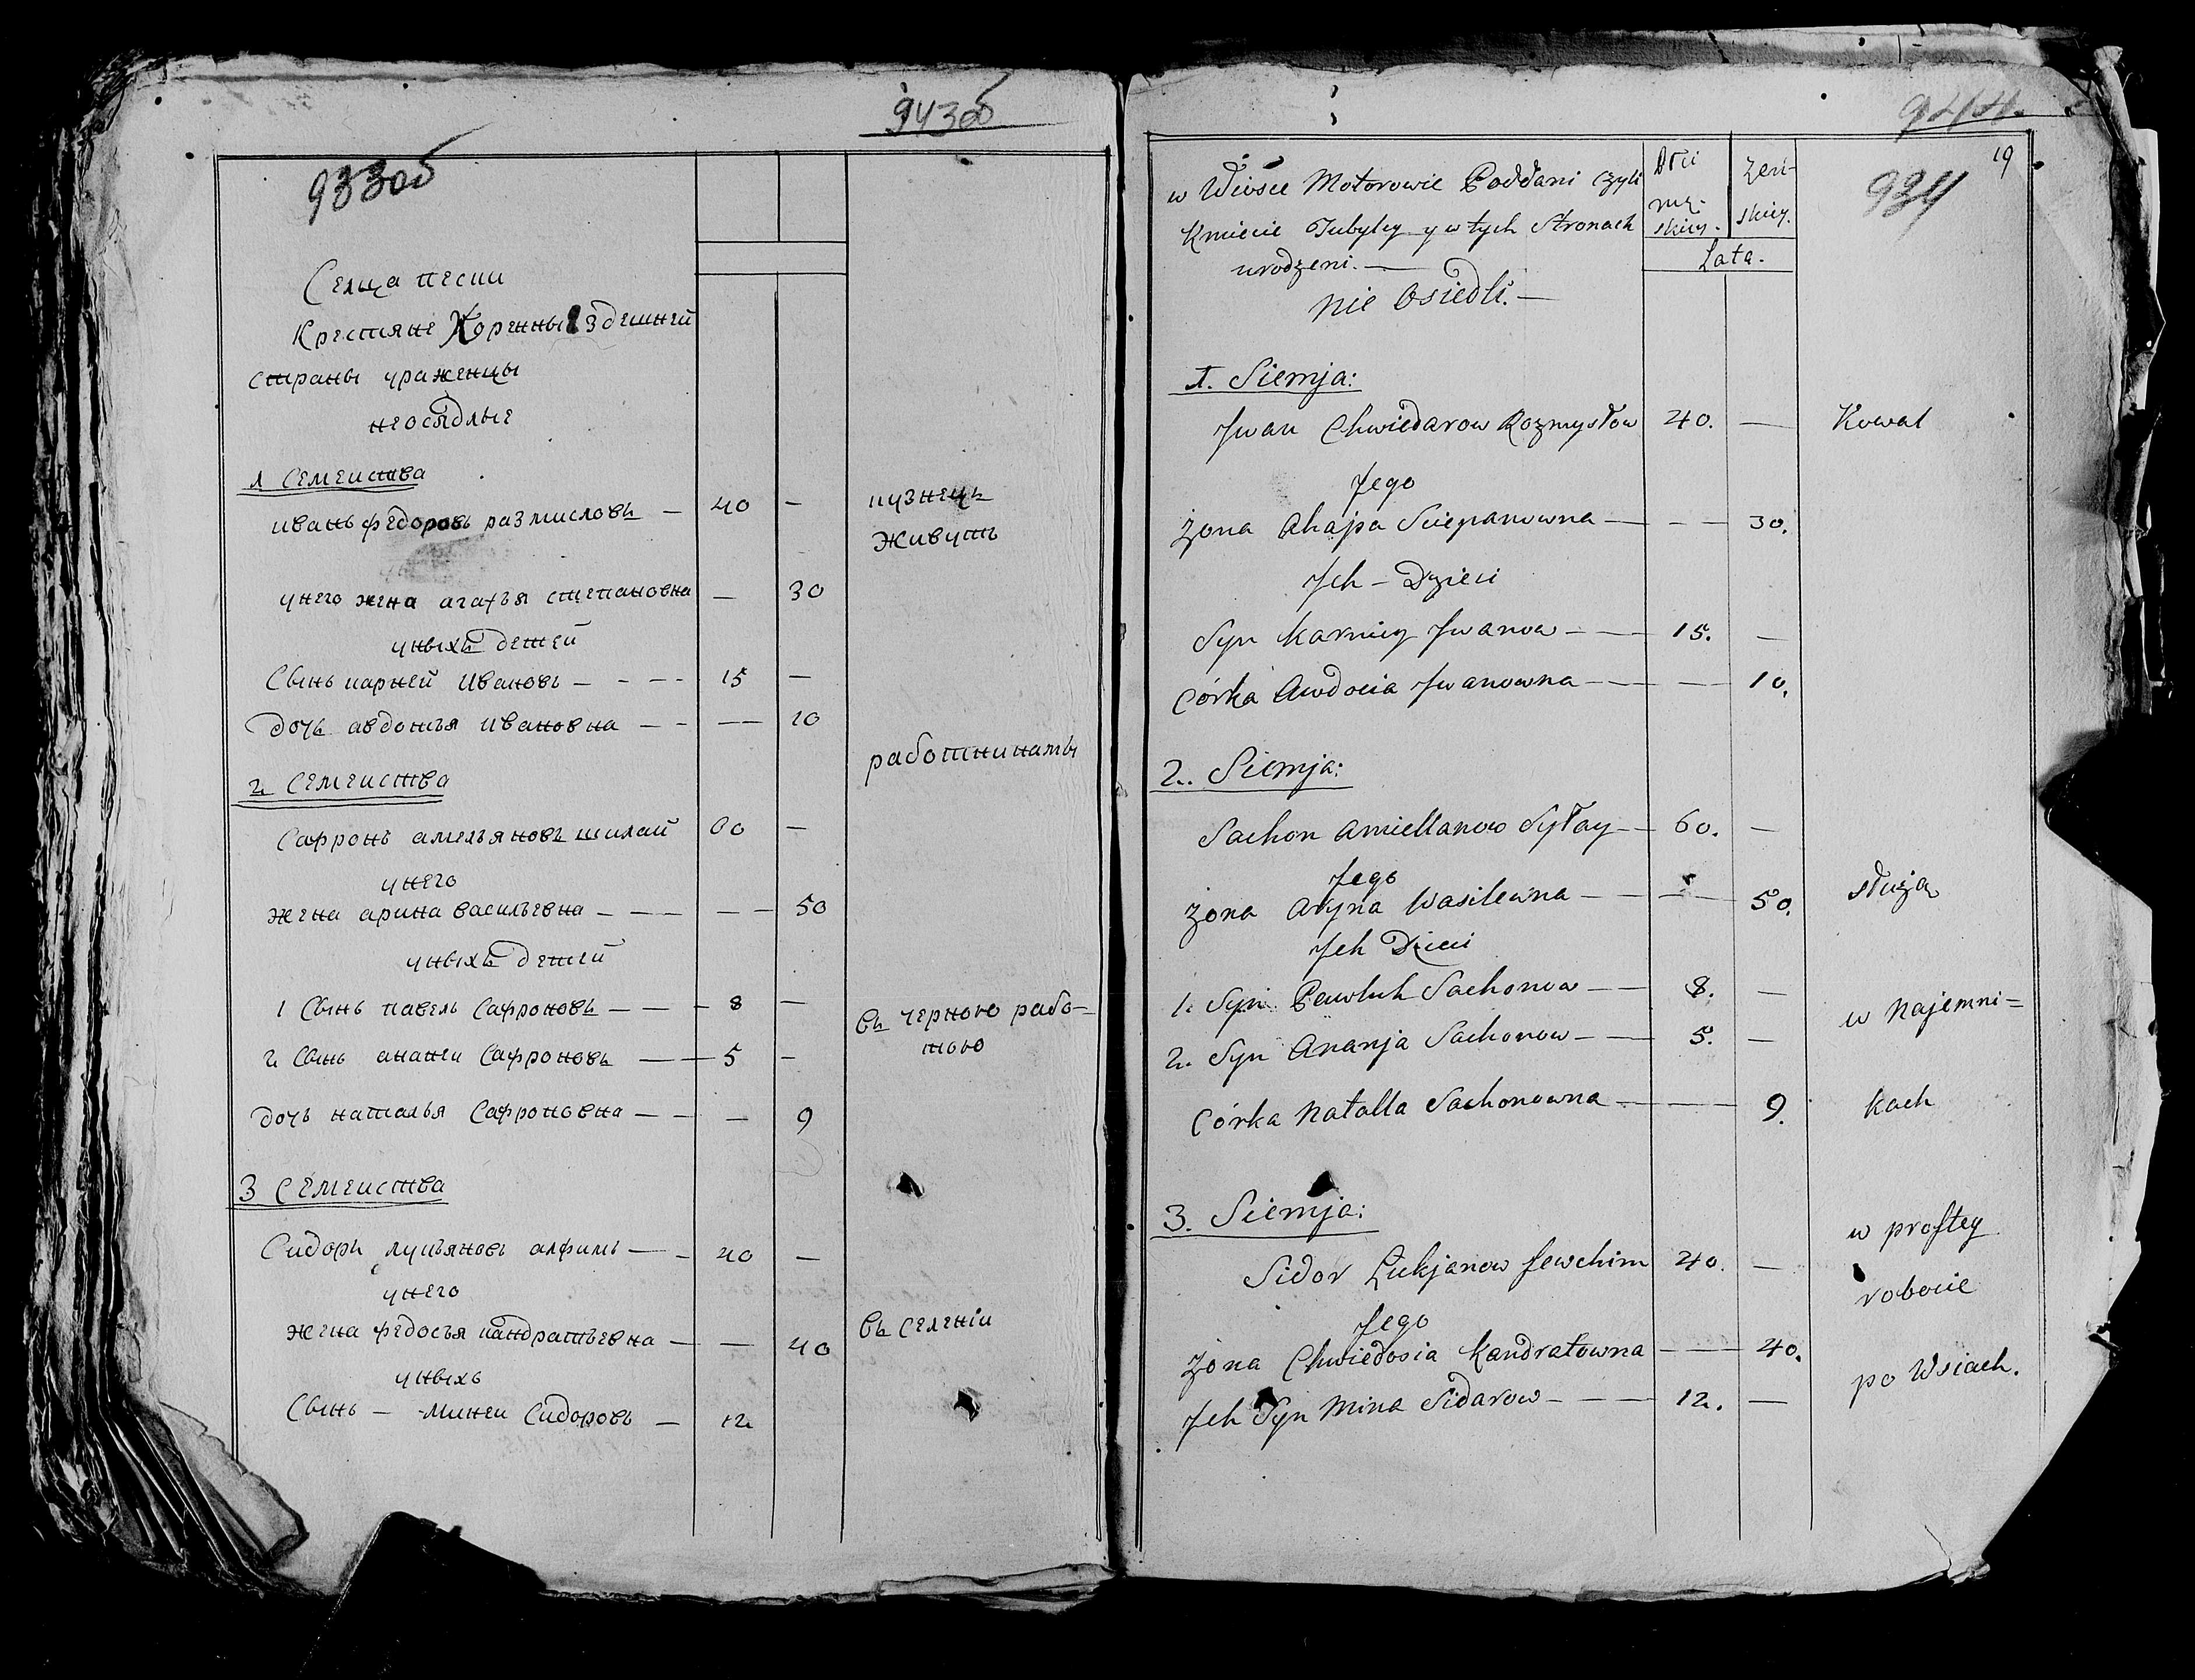 943об
933об
Селца песни
Крестяне Коренные здешней
страны ураженцы
неосядлые
1 Семеиства
иванъ федоровъ размисловъ — 40 —
кузнецъ
Живутъ
унего жена агафья степановна — 30
уныхъ детей
Сынъ карней Ивановъ — - -- 15 —
дочь авдотья Ивановна — - — 10
работникаты
2 Семеиства
Сафронъ амельяновъ шилаи 60 —
унего
жена арина васильевна — — — 50
уныхъ детей
1 Сынъ павелъ Сафроновъ — — - 8 —
въ черною рабо=
2 Сынъ ананеи Сафроновъ — — 5 -
тою
дочь наталья Сафроновна — - — 9
3 Семеиства
Сидоръ лукьяновъ алфимъ — - 40 —
унего
въ селеніи
жена федосья кандратьевна — — 40
уныхъ
Сынъ — минеи Сидоровъ — 12
944.
19
934
w Wiosce Motorowie Poddani czyli
Kmiecie Tubylcy y w tych Stronach
urodzeni. —
nie Osiedli. —
Płci
męz-
skiey.
żeń-
skiey.
Lata.
1. Siemja:
Jwan Chwiedarow Rozmysłow 40. — Kowal
Jego
żona Ahapa Sciepanowna — - — 30.
Jch — Dzieci
Syn Karniey Jwanow — — 15. —
Córka Awdocia Jwanowna — — — 10.
2. Siemja:
Sachon Amiellanow Syłay — 60. —
Jego
żona Aryna Wasilewna — — — 50.
służą
Jch Dzieci
1. Syn Pawluk Sachonow — — 8. —
w najemni=
2. Syn Ananja Sachonow — — 5. —
Córka Natalla Sachonowna — — 9.
kach
3. Siemja:
w prostey
Sidor Łukjanow Jewchim 40. —
robocie
Jego
żona Chwiedosia Kandratowna — — 40.
po Wsiach.
Jch Syn Mina Sidarow — - — 12. —